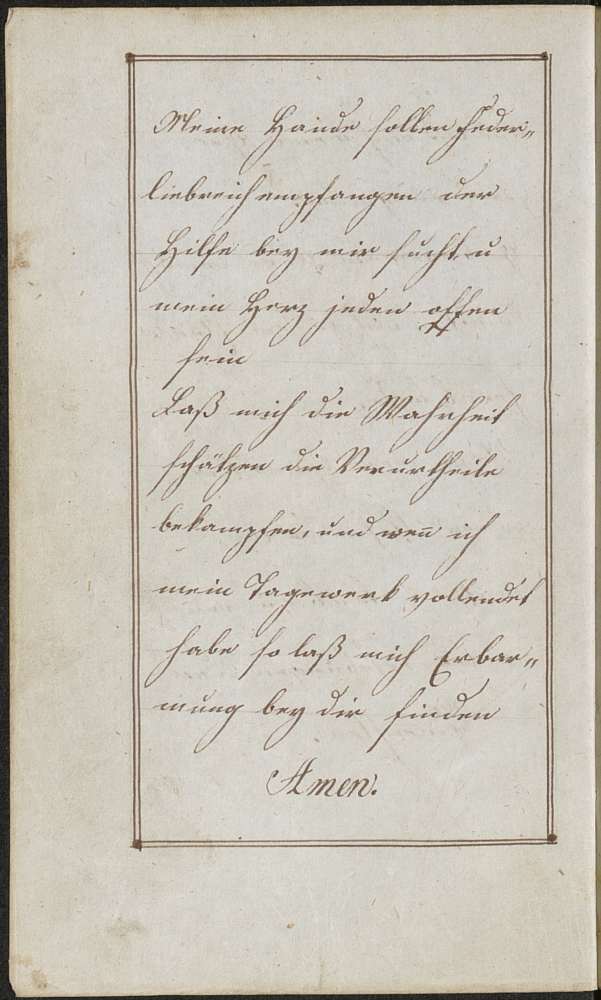 Meine Hände sollen Jeden„
liebreich empfangen der
Hilfe bey mir sucht u
mein Herz jeden offen
sein
Laß mich die Wahrheit
schätzen die Verurtheile
bekämpfen, und wen̄ ich
mein Tagewerk vollendet
habe so laß mich Erbar„
mung bey dir finden
Amen.